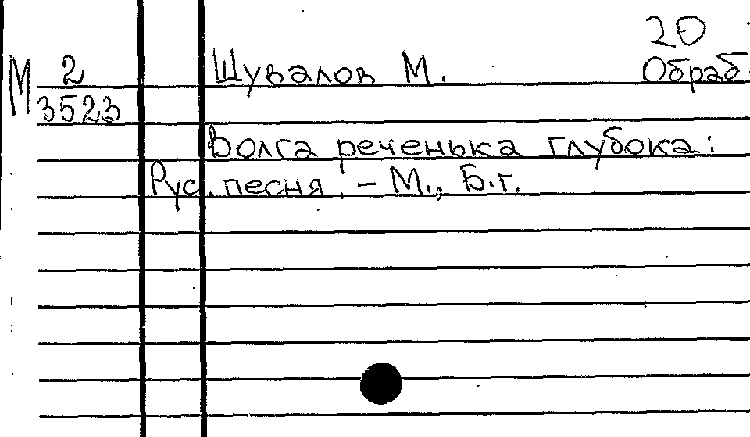 20
М 2 Шувалов М. Обраб.
3523
Волга реченька глубока:
Рус. песня. – М., Б.г.